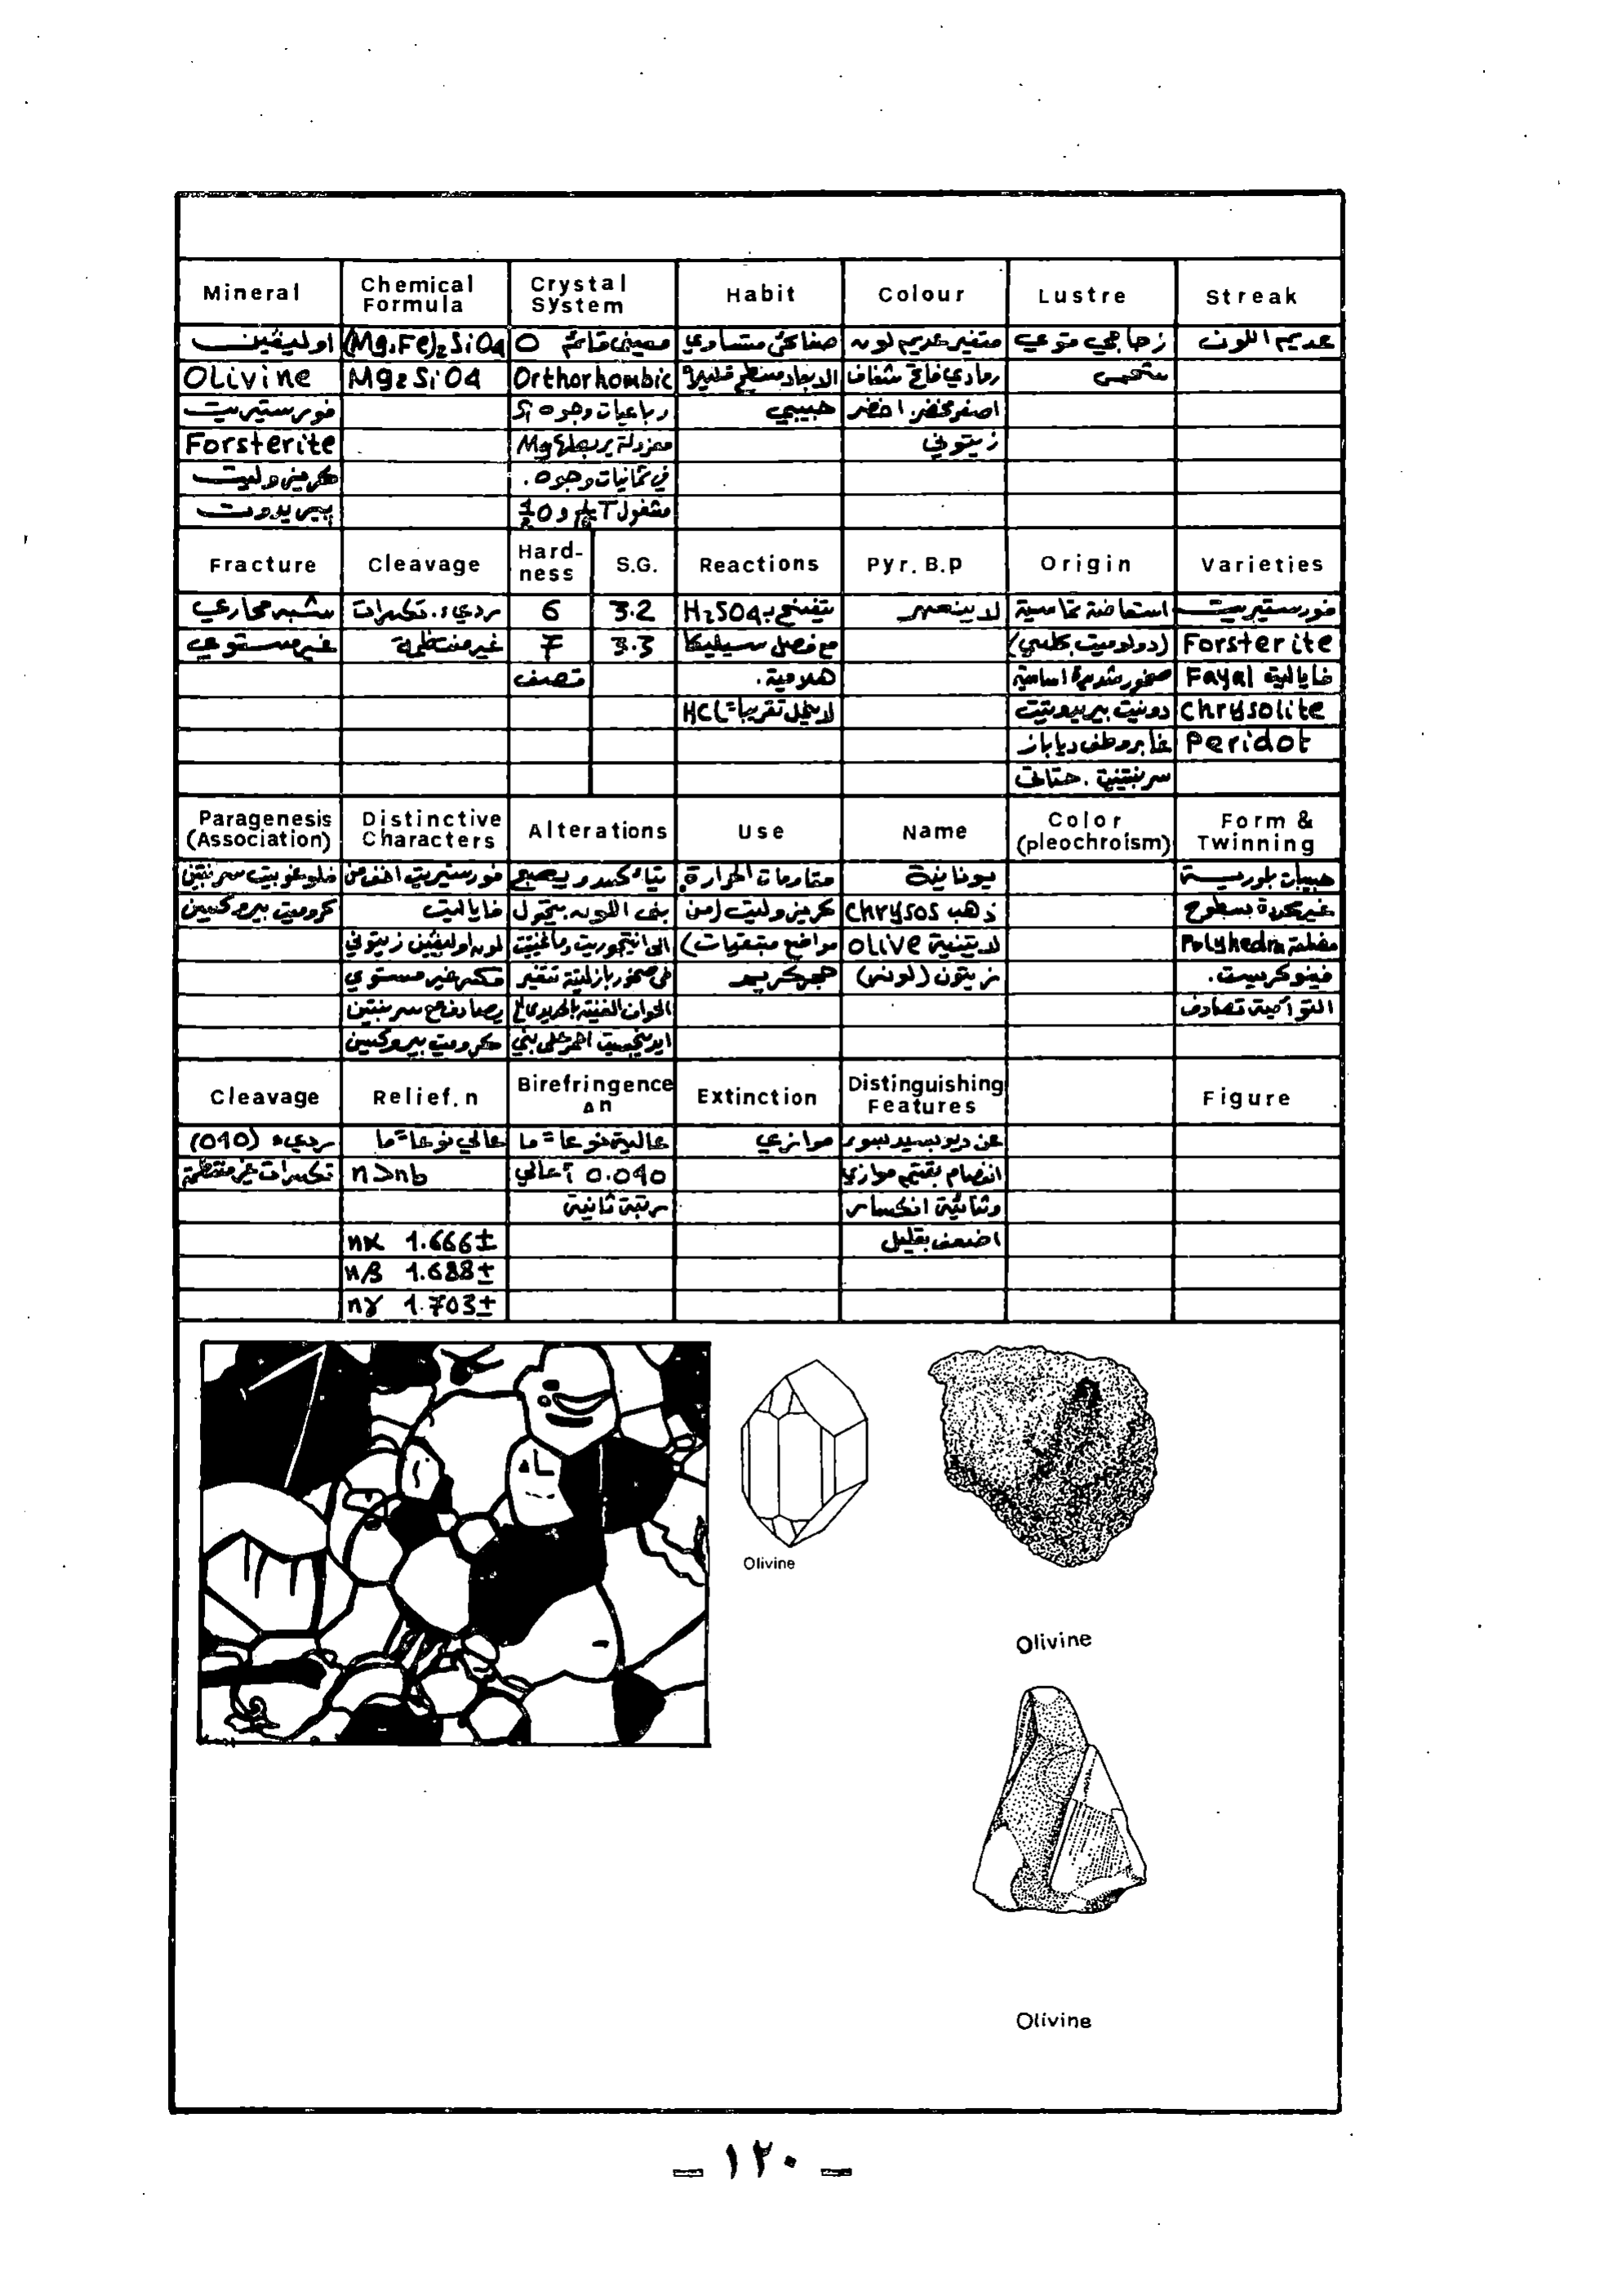 Mineral Chemical Formula Crystal System Habit Colour Lustre Streak
اوليفين (Mg,Fe)2SiO4 معيني قائم O صفائحي متساوي متغير عديم لون زجاجي قوي عديم اللون
Olivine Mg2SiO4 Orthorhombic الابعاد مسطح قليلا رمادي فاتح شفاف شحمي
فورستيريت رباعيات وجوه Si حبيبي اصفر مخضر. اخضر
Forsterite معزولة يربطها Mg زيتوني
كريزوليت في ثمانيات وجوه.
پيريدوت مشغول T و O
Fracture Cleavage Hard-ness S.G. Reactions Pyr. B.p Origin Varieties
شبه محاري رديء. تكسرات 6 3.2 يتفتح بـ H2SO4 لا ينصهر استحاضة تماسية فورستيريت
غير مستوي غير منتظمة 7 3.3 مع فصل سيليكا (دولوميت، كلسي) Forsterite
تصف هلامية. صخور شديدة اساسية فاياليت Fayal
لا ينحل تقريبا بـ HCl دونيت بيريدوتيت Chrysolite
غابرو طف دياباز Peridot
سربنتينية.
Paragenesis (Association) Distinctive Characters Alterations Use Name Color (pleochroism) Form & Twinning
فلوغوبيت سربنتين فورستيريت اخف من يتأكسد ويصبح مقاومات الحرارة. يونانية حبيبات بلورية
كروميت بيروكسين فاياليت بني اللون. يتحول كريزوليت (من Chrysos ذهب غير محددة بسطوح
لون اوليفين زيتوني الى انتيجوريت ومانيتيت مواضع متبقيات) لاتينية OLIVE Polyhedra
مكسر غير مستوي في صخور بازلتية تتغير حجر كريم زيتون (لونه) فينوكريست.
يصادف مع سربنتين الحواف الغنية بالحديد الى التوأمية تصادف
كروميت بيروكسين ايدنجسيت احمر الى بني
Cleavage Relief. n Birefringence Δn Extinction Distinguishing Features Figure
رديء (010) عالي نوعا ما عالية نوعا ما موازي عن ديوبسيد بسوء
تكسرات غير منتظمة n>nb 0.040 أعالي انفصام بقيم موازي
رتبة ثانية وثنائية انكسار
nα 1.666± اضعف بقليل
nβ 1.688±
nγ 1.703±
Olivine
Olivine
Olivine
_ ١٢٠ _